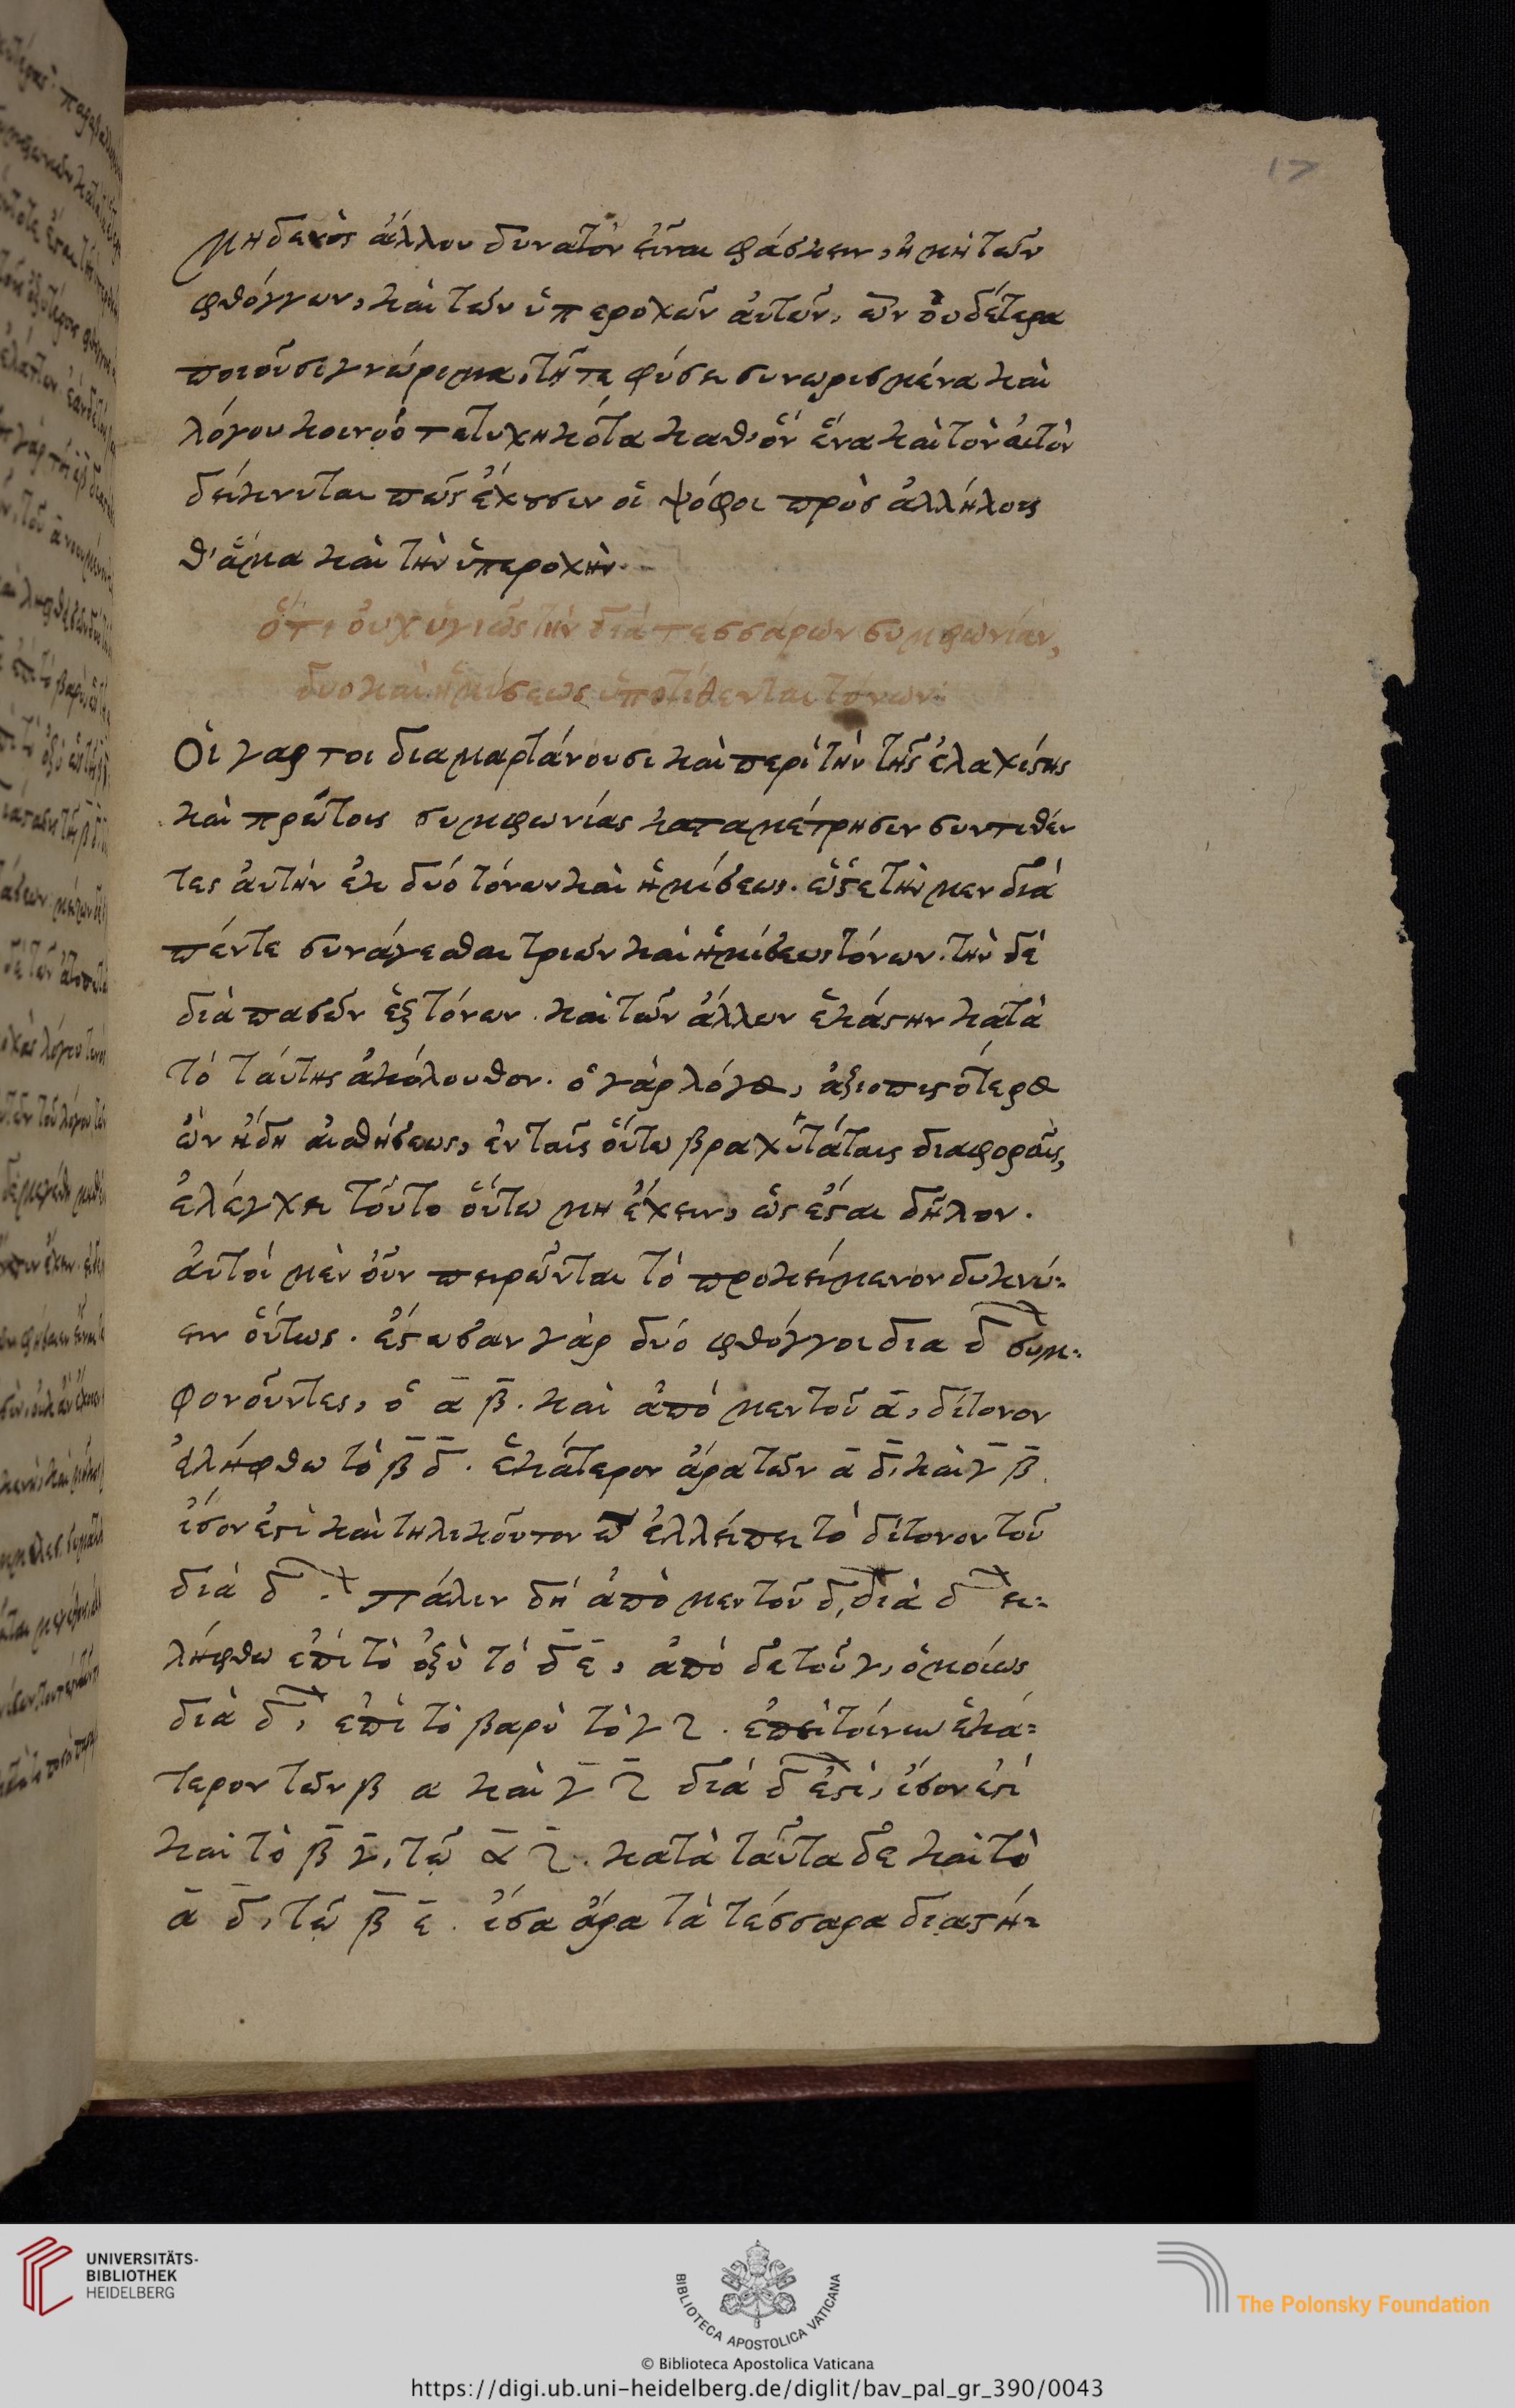 17
μηδενὸς ἄλλου δυνατὸν εἶναι φάσκειν, ἢ μὴ τῶν
φθόγγων, καὶ τῶν ὑπεροχῶν ἀυτῶν, ὧν ὀυδέτερα
ποιοῦσι γνώριμα, τῆ τε φύσει συνωρισμένα καὶ
λόγου κοινοῦ τετυχηκότα καθ' ὃν ἕνα καὶ τὸν ἀυτὸν
δείκνυται πῶς ἔχουσιν οἱ ψόφοι πρὸς ἀλλήλους
θ' ἅμα καὶ τὴν ὑπεροχὴν.
ὅτι ὀυχ ὑγιῶς τὴν διὰ τεσσάρων συμφωνίαν,
δυο καὶ ἡμίσεως ὑποτίθενται τόνων:
Οἱ γαρ τοι διαμαρτάνουσι καὶ περὶ τὴν τῆς ἐλαχίστης
καὶ πρώτοις συμφωνίας καταμέτρησιν συντιθέν
τες ἀυτὴν ἐκ δύο τόνων καὶ ἡμίσεως. ὥστε τὴν μεν διὰ
πέντε συνάγεσθαι τριῶν καὶ ἡμίσεως τόνων. τὴν δὲ
διὰ πασῶν ἓξ τόνων. καὶ τῶν ἄλλων ἑκάστην κατὰ
τὸ ταύτης ἀκόλουθον. ὁ γὰρ λόγος, ἀξιοπιστότερος
ὢν ἤδη αἰσθήσεως, ἐν ταῖς ὅυτω βραχυτάταις διαφοραῖς,
ἐλέγχει τοῦτο ὅυτω μη ἔχειν, ὡς ἔσται δῆλον.
ἀυτοὶ μὲν ὀῦν πειρῶνται τὸ προκείμενον δεικνύ-
ειν ὅυτως. ἔστωσαν γὰρ δύο φθόγγοι δια δ συμ-
φονοῦντες, ὁ α β. καὶ ἀπὸ μεν τοῦ α, δίτονον
ἐιλήφθω τὸ β δ. ἑκάτερον ἄρα τῶν α δ, καὶ γ β.
ἴσον ἐστὶ καὶ τηλικοῦτον ᾧ ἐλλείπει τὸ δίτονον τοῦ
διὰ δ. πάλιν δὴ ἀπὸ μεν τοῦ δ, διὰ δ ει-
λήφθω ἐπὶ τὸ ὀξὺ τὸ δ ε, ἀπὸ δε τοῦ γ, ὁμοίως
διὰ δ, ἐπὶ τὸ βαρὺ τὸ γ ζ. ἐπεὶ τοίνυν ἑκά-
τερον τῶν β α καὶ γ ζ διὰ δ ἐστὶ, ἴσον ἐστὶ
καὶ τὸ β γ, τῷ α ζ. κατὰ ταῦτα δε καὶ τὸ
α δ, τῷ β ε. ἴσα ἄρα τὰ τέσσαρα διαστή-
UNIVERSITÄTS-
BIBLIOTHEK
HEIDELBERG
BIBLIOTECA APOSTOLICA VATICANA
The Polonsky Foundation
© Biblioteca Apostolica Vaticana
https://digi.ub.uni-heidelberg.de/diglit/bav_pal_gr_390/0043